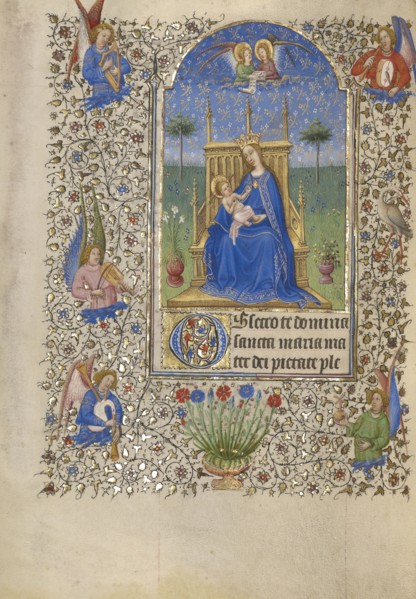 Obsecro te domina
sancta maria ma
ter dei pietate ple